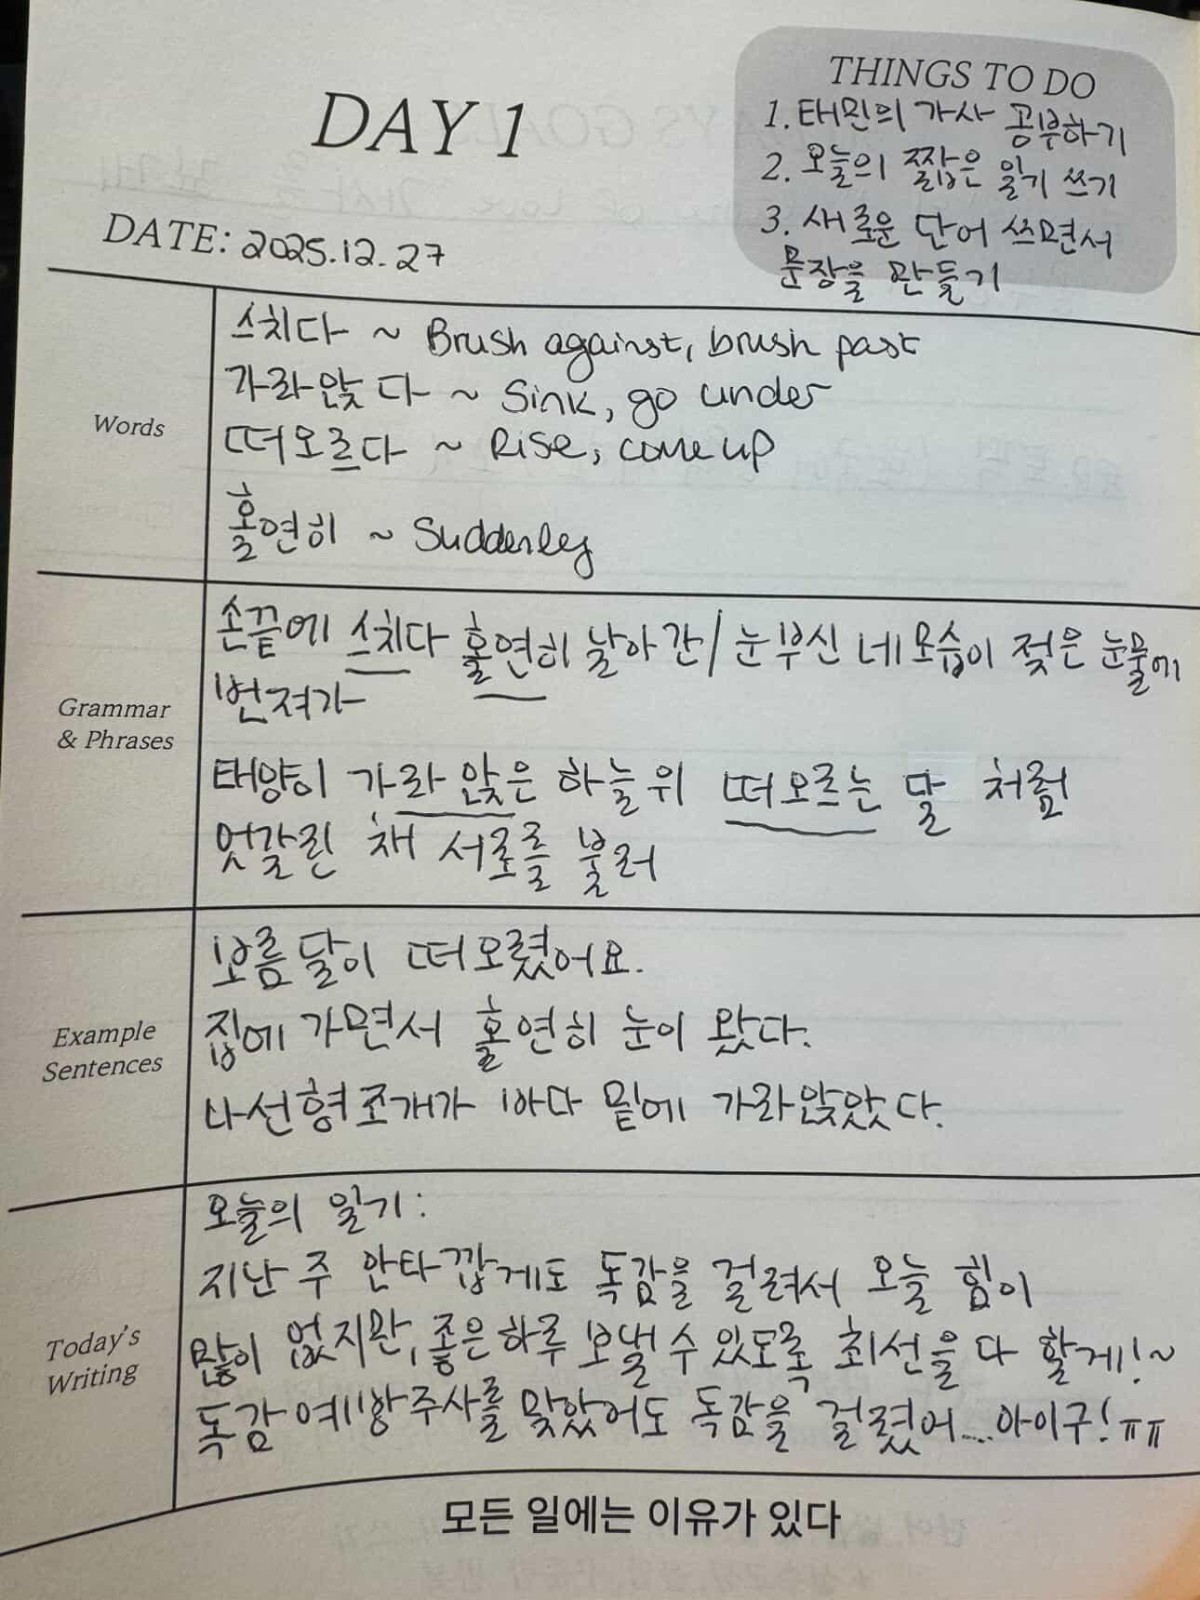 DAY 1
THINGS TO DO
1. 태민의 가사 공부하기
2. 오늘의 짧은 일기 쓰기
3. 새로운 단어 쓰면서
문장을 만들기
DATE: 2025.12.27
Words
스치다 ~ Brush against, brush past
가라앉다 ~ Sink, go under
떠오르다 ~ Rise, come up
홀연히 ~ Suddenly
Grammar
& Phrases
손끝에 스치다 홀연히 날아간/눈부신 네 모습이 젖은 눈물에
번져가
태양이 가라앉은 하늘 위 떠오르는 달 처럼
엇갈린 채 서로를 불러
Example
Sentences
보름달이 떠오렸어요.
집에 가면서 홀연히 눈이 왔다.
나선형 조개가 바다 밑에 가라앉았다.
Today's
Writing
오늘의 일기:
지난 주 안타깝게도 독감을 걸려서 오늘 힘이
많이 없지만, 좋은 하루 보낼 수 있도록 최선을 다 할게!~
독감 예방주사를 맞았어도 독감을 걸렸어....아이구! ㅠㅠ
모든 일에는 이유가 있다